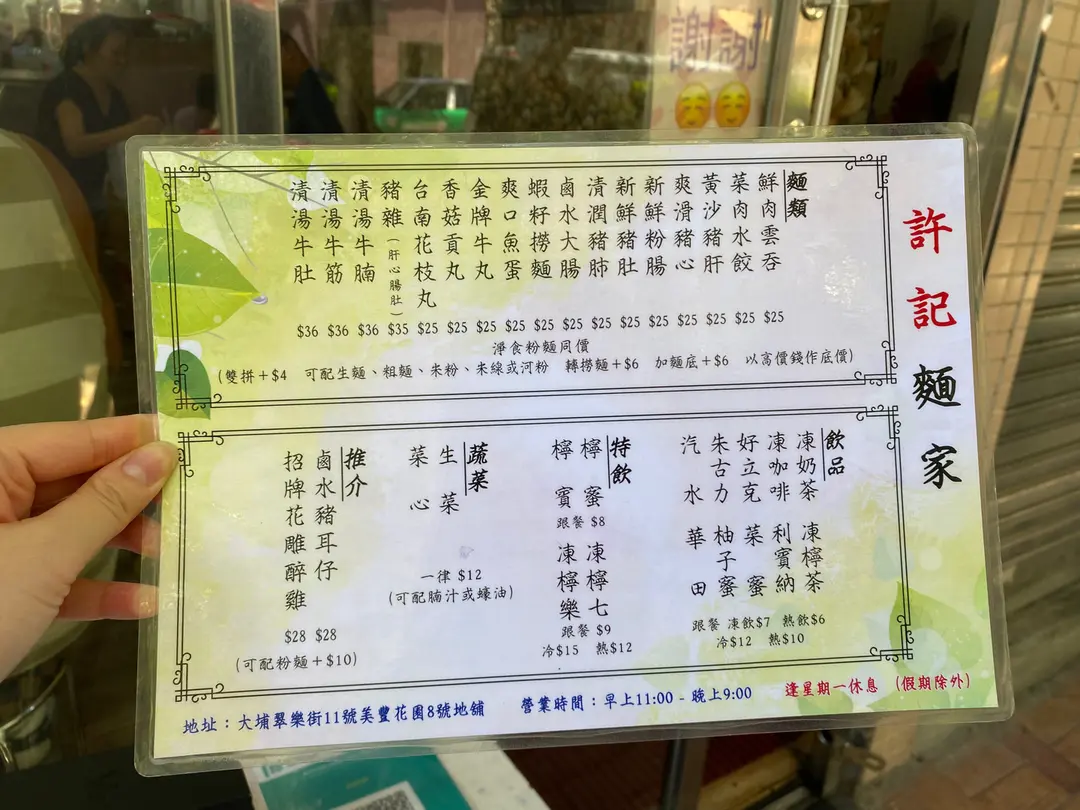 謝謝
許記麵家
麵類
鮮肉雲吞
菜肉水餃
黃沙豬肝
爽滑豬心
新鮮粉腸
新鮮豬肚
清潤豬肺
鹵水大腸
蝦籽撈麵
爽口魚蛋
金牌牛丸
香菇貢丸
台南花枝丸
豬雜(肝心腸肚)
清湯牛腩
清湯牛筋
清湯牛肚
$36 $36 $36 $35 $25 $25 $25 $25 $25 $25 $25 $25 $25 $25 $25 $25 $25
淨食粉麵同價
(雙拼+$4 可配生麵、粗麵、米粉、米線或河粉 轉撈麵+$6 加麵底+$6 以高價錢作底價)
飲品
凍奶茶
凍咖啡
好立克
朱古力
汽水
凍檸茶
利賓納
菜蜜
柚子蜜
華田
跟餐 凍飲$7 熱飲$6
冷$12 熱$10
特飲
檸蜜
檸賓
跟餐 $8
凍檸七
凍檸樂
跟餐 $9
冷$15 熱$12
蔬菜
生菜
菜心
一律 $12
(可配腩汁或蠔油)
推介
鹵水豬耳仔
招牌花雕醉雞
$28 $28
(可配粉麵+$10)
地址：大埔翠樂街11號美豐花園8號地舖 營業時間：早上11:00 - 晚上9:00 逢星期一休息 (假期除外)